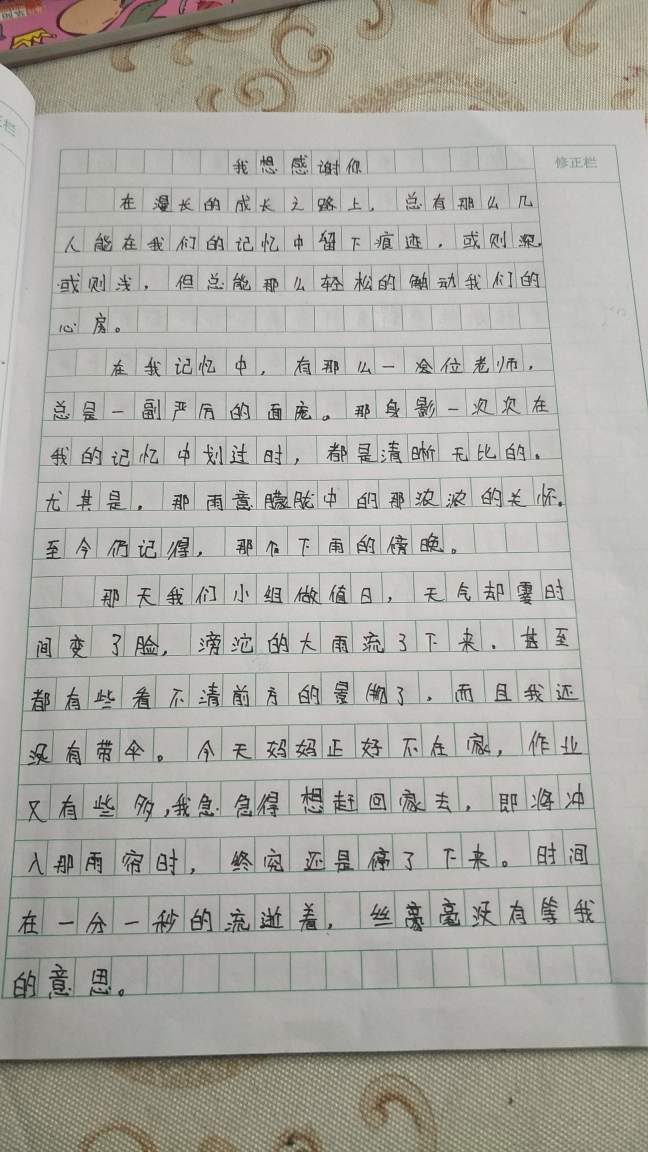 修正栏
我想感谢你
在漫长的成长之路上，总有那么几
人能在我们的记忆中留下痕迹，或则深
或则浅，但总能那么轻松的触动我们的
心房。
在我记忆中，有那么一位老师，
总是一副严厉的面庞。那身影一次次在
我的记忆中划过时，都是清晰无比的。
尤其是，那雨意朦胧中的那浓浓的关怀。
至今仍记得，那个下雨的傍晚。
那天我们小组做值日，天气却霎时
间变了脸，滂沱的大雨流了下来，甚至
都有些看不清前方的景物了，而且我还
没有带伞。今天妈妈正好不在家，作业
又有些多，我急急得想赶回家去，即将冲
入那雨帘时，终究还是停了下来。时间
在一分一秒的流逝着，丝毫没有等我
的意思。